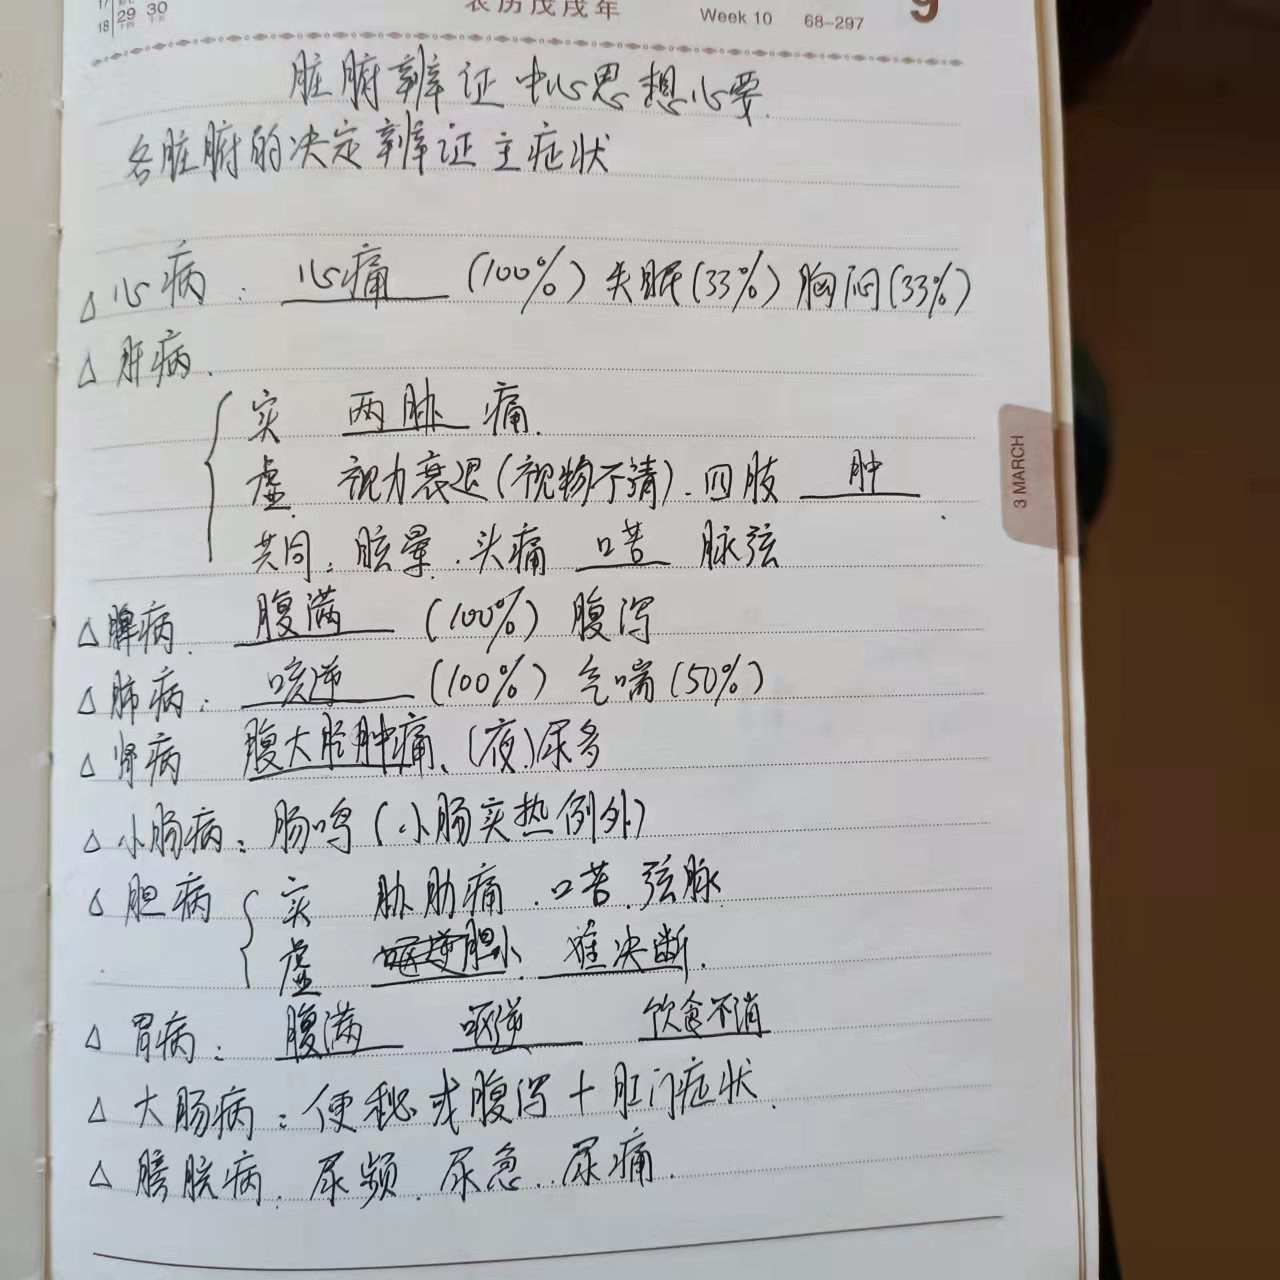 17
18 29 30
农历戊戌年 Week 10 68-297 9
脏腑辨证中心思想心要.
各脏腑的决定辨证主症状
△心病: 心痛 (100%) 失眠(33%) 胸闷(33%)
△肝病.
实 两胁 痛.
虚. 视力衰退(视物不清). 四肢 肿.
共同: 眩晕. 头痛 口苦 脉弦
△脾病. 腹满 (100%) 腹泻
△肺病: 咳逆 (100%) 气喘(50%)
△肾病 腹大胫肿痛、(夜)尿多
△小肠病: 肠鸣(小肠实热例外)
△胆病 实 胁肋痛. 口苦. 弦脉
虚 胆小、难决断.
△胃病: 腹满 呕逆 饮食不消
△大肠病: 便秘或腹泻+肛门症状.
△膀胱病. 尿频. 尿急. 尿痛.
3 MARCH